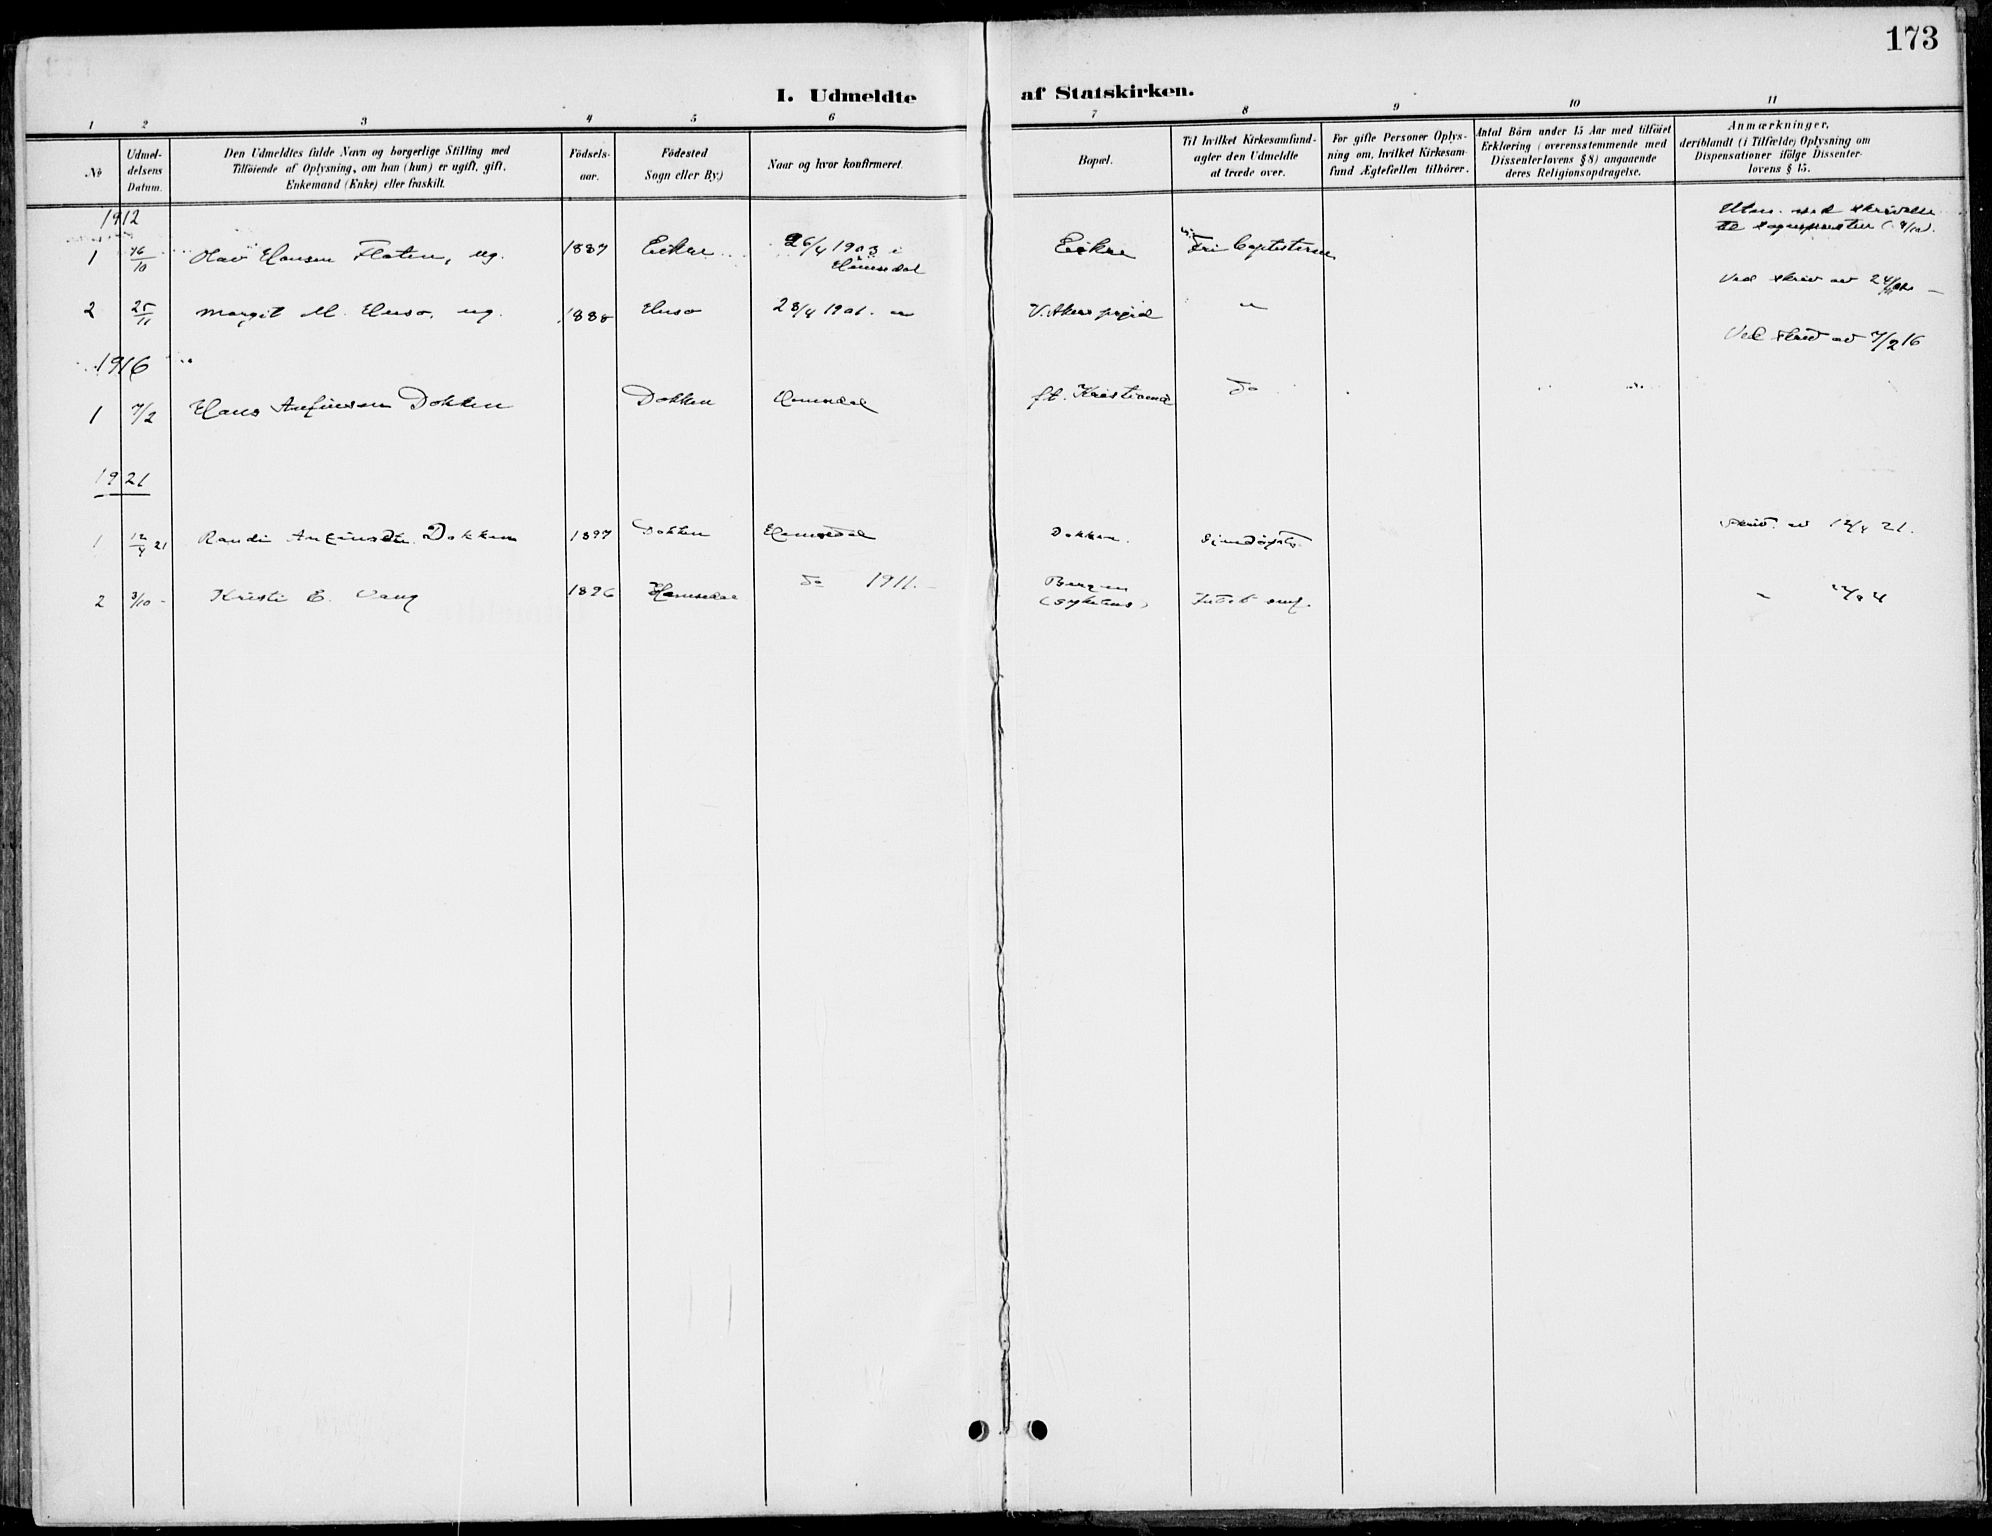 173
I. Udmeldte af Statskirken.
1 2 3 4 5 6 7 8 9 10 11
No
Udmel-
delsens
Datum.
Den Udmeldtes fulde Navn og borgerlige Stilling med
Tilföiende af Oplysning, om han (hun) er ugift, gift,
Enkemand (Enke) eller fraskilt.
Födsels-
aar.
Födested
Sogn eller By.)
Naar og hvor konfirmeret.
Bopæl.
Til hvilket Kirkesamfund-
agter den Udmeldte
at træde over.
For gifte Personer Oplys-
ning om, hvilket Kirkesam-
fund Ægtefællen tilhörer.
Antal Börn under 15 Aar med tilföiet
Erklæring (overensstemmende med
Dissenterlovens § 8) angaaende
deres Religionsopdragelse.
Anmærkninger,
deriblandt (i Tilfælde) Oplysning om
Dispensationer ifölge Dissenter-
lovens § 15.
1912
1 16/10 Olav Hansen Flaten, ug. 1887 Eikre 26/4 1903 i Hemsedal Eikre Fri baptisterne
2 25/11 Margit M. Huso, ug. 1888 Huso 28/4 1901 V. Aker Ved skriv av 24/11
1916
1 7/2 Hans Anfinsen Dokken Dokken Hemsedal ft. Kristiania do Ved skriv av 7/2 16
1921
1 12/4 21 Randi Anfinsdtr. Dokken 1897 Dokken Hemsedal Dokken. skriv. av 12/4 21.
2 3/10 - Kristi E. Vang 1896 Hemsedal do 1911. Bergen (sykehus)